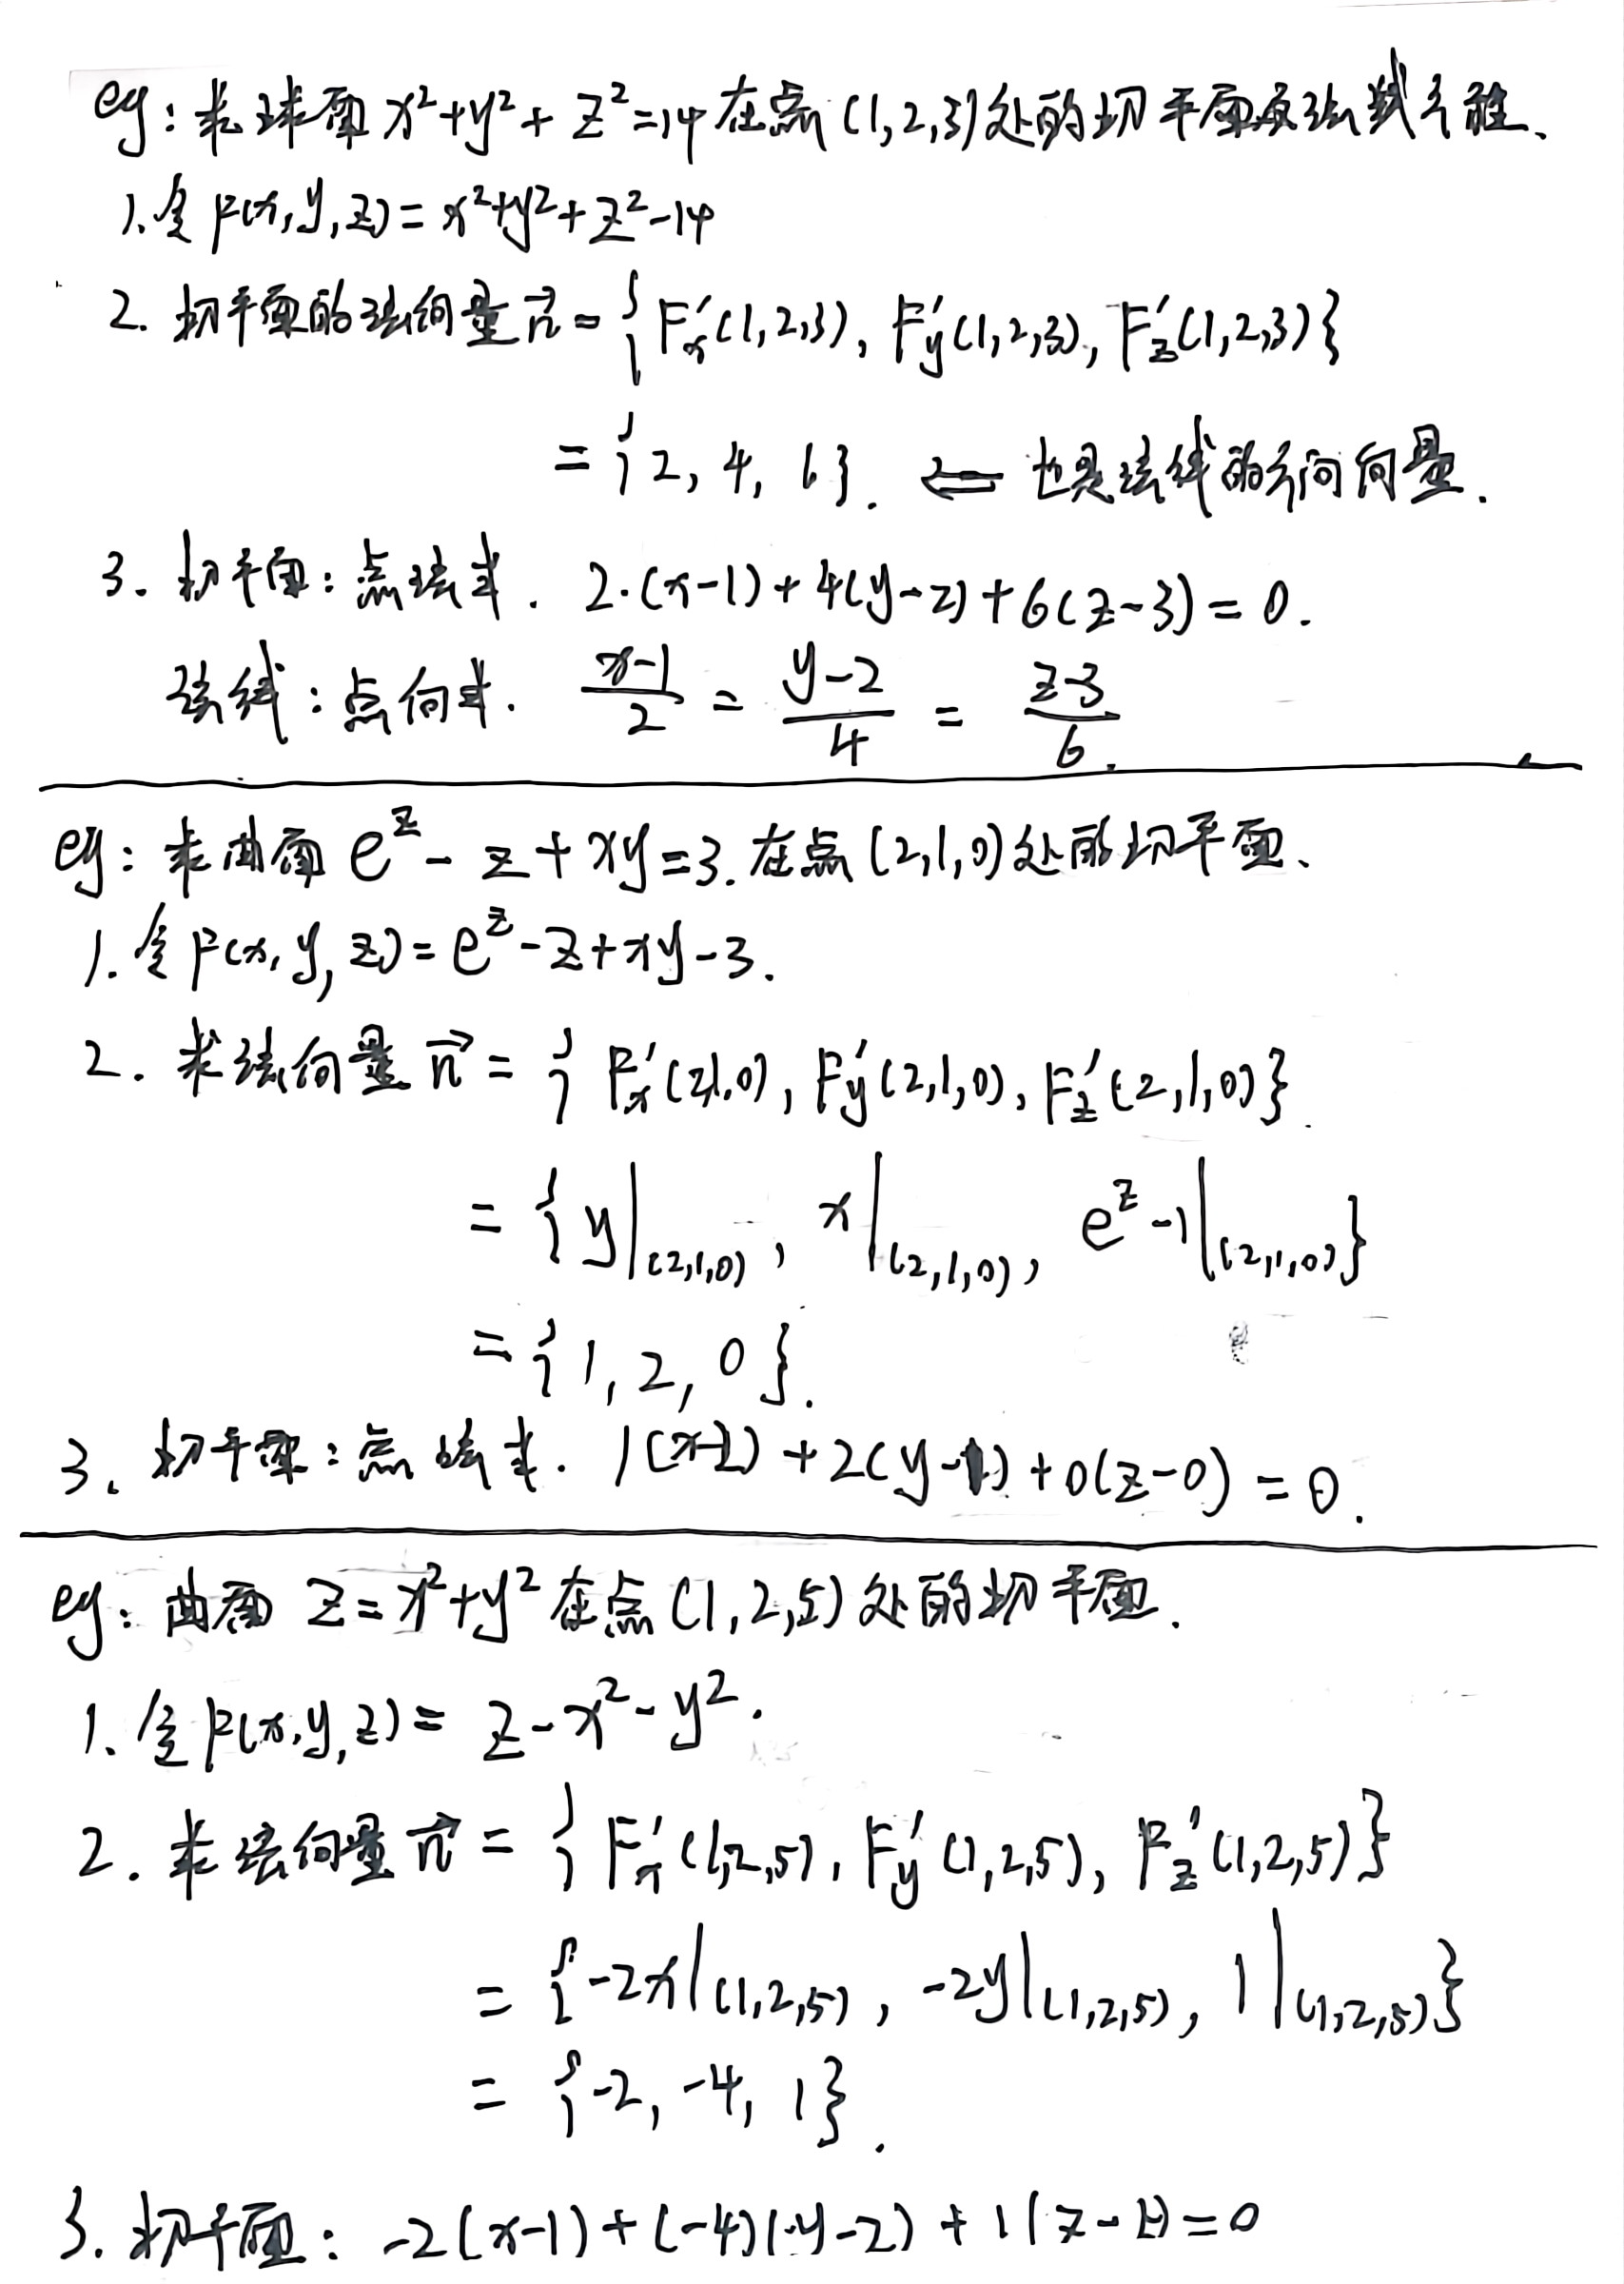 eg：求球面 x²+y²+z²=14 在点(1,2,3)处的切平面及法线方程、
1.令F(x,y,z)=x²+y²+z²-14
2. 切平面的法向量 n⃗ = {F'x(1,2,3), F'y(1,2,3), F'z(1,2,3)}
= {2, 4, 6}. ⇐ 也是法线的方向向量.
3. 切平面：点法式. 2·(x-1)+4(y-2)+6(z-3)=0.
法线：点向式. (x-1)/2 = (y-2)/4 = (z-3)/6.
eg：求曲面 e^z - z + xy=3. 在点(2,1,0)处的切平面、
1. 令F(x,y,z)=e^z-z+xy-3.
2. 求法向量 n⃗ = {F'x(2,1,0), F'y(2,1,0), F'z(2,1,0)}.
= {y|(2,1,0), x|(2,1,0), e^z-1|(2,1,0)}
= {1, 2, 0}.
3. 切平面：点法式. 1(x-2)+2(y-1)+0(z-0)=0.
eg：曲面 z=x²+y² 在点(1,2,5)处的切平面.
1. 令F(x,y,z)= z-x²-y².
2. 求法向量 n⃗ = {F'x(1,2,5), F'y(1,2,5), F'z(1,2,5)}
= {-2x|(1,2,5), -2y|(1,2,5), 1|(1,2,5)}
= {-2, -4, 1}.
3. 切平面：-2(x-1)+(-4)(y-2)+1(z-)=0